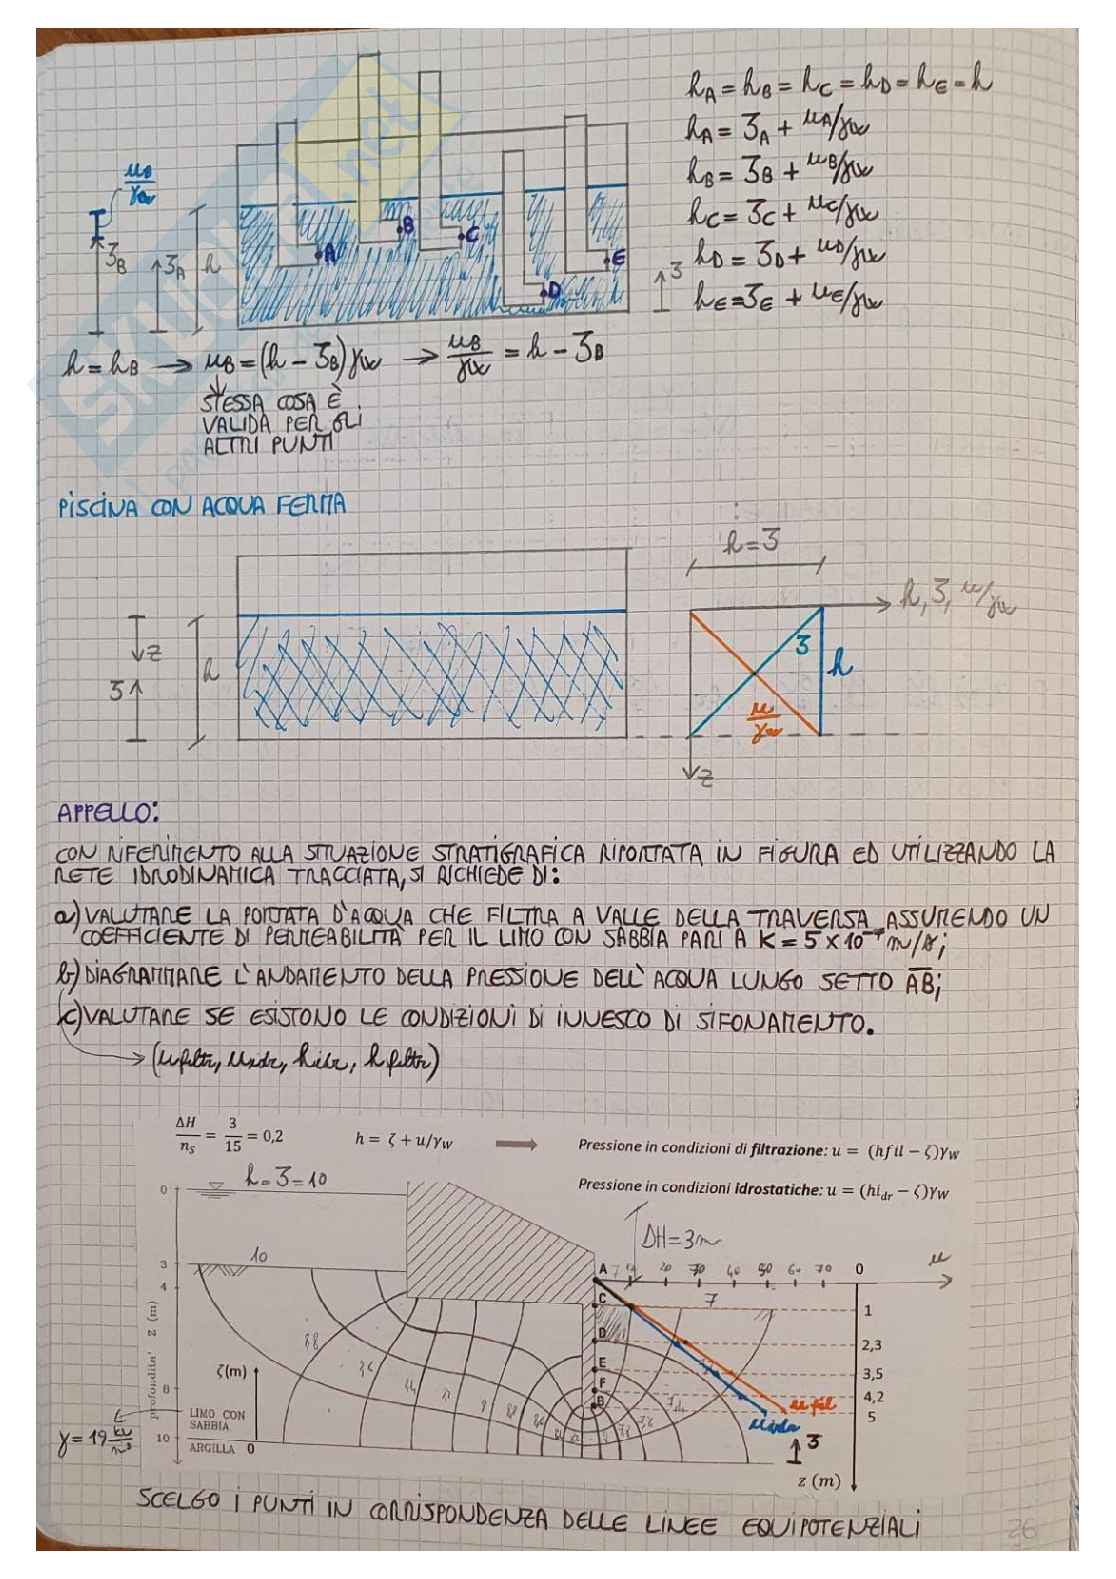 hA = hB = hC = hD = hE = h
hA = ζA + uA/γw
hB = ζB + uB/γw
hC = ζC + uC/γw
hD = ζD + uD/γw
hE = ζE + uE/γw
uB/γw
ζB ζA h
A B C D E
ζ
h = hB → uB = (h - ζB)γw → uB/γw = h - ζB
STESSA COSA È
VALIDA PER GLI
ALTRI PUNTI
PISCINA CON ACQUA FERMA
h = ζ
h, ζ, u/γw
z
ζ
h
ζ
h
u/γw
z
APPELLO:
CON RIFERIMENTO ALLA SITUAZIONE STRATIGRAFICA RIPORTATA IN FIGURA ED UTILIZZANDO LA
RETE IDRODINAMICA TRACCIATA, SI RICHIEDE DI:
a) VALUTARE LA PORTATA D'ACQUA CHE FILTRA A VALLE DELLA TRAVERSA ASSUMENDO UN
COEFFICIENTE DI PERMEABILITÀ PER IL LIMO CON SABBIA PARI A K = 5 x 10⁻⁷ m/s;
b) DIAGRAMMARE L'ANDAMENTO DELLA PRESSIONE DELL'ACQUA LUNGO SETTO AB;
c) VALUTARE SE ESISTONO LE CONDIZIONI DI INNESCO DI SIFONAMENTO.
(u filtr, u idr, h idr, h filtr)
ΔH/ns = 3/15 = 0,2
h = ζ + u/γw
Pressione in condizioni di filtrazione: u = (hfil − ζ)γw
Pressione in condizioni idrostatiche: u = (hidr − ζ)γw
h = ζ = 10
0
DH = 3m
10
3
4
8
10
profondità, z (m)
ζ(m)
LIMO CON
SABBIA
ARGILLA 0
γ = 19 kN/m³
A 20 30 40 50 60 70 0 u
C 7 1
D 2,3
E 3,5
F 4,2
B 5
u fil
u idr
ζ
z (m)
SCELGO I PUNTI IN CORRISPONDENZA DELLE LINEE EQUIPOTENZIALI
26